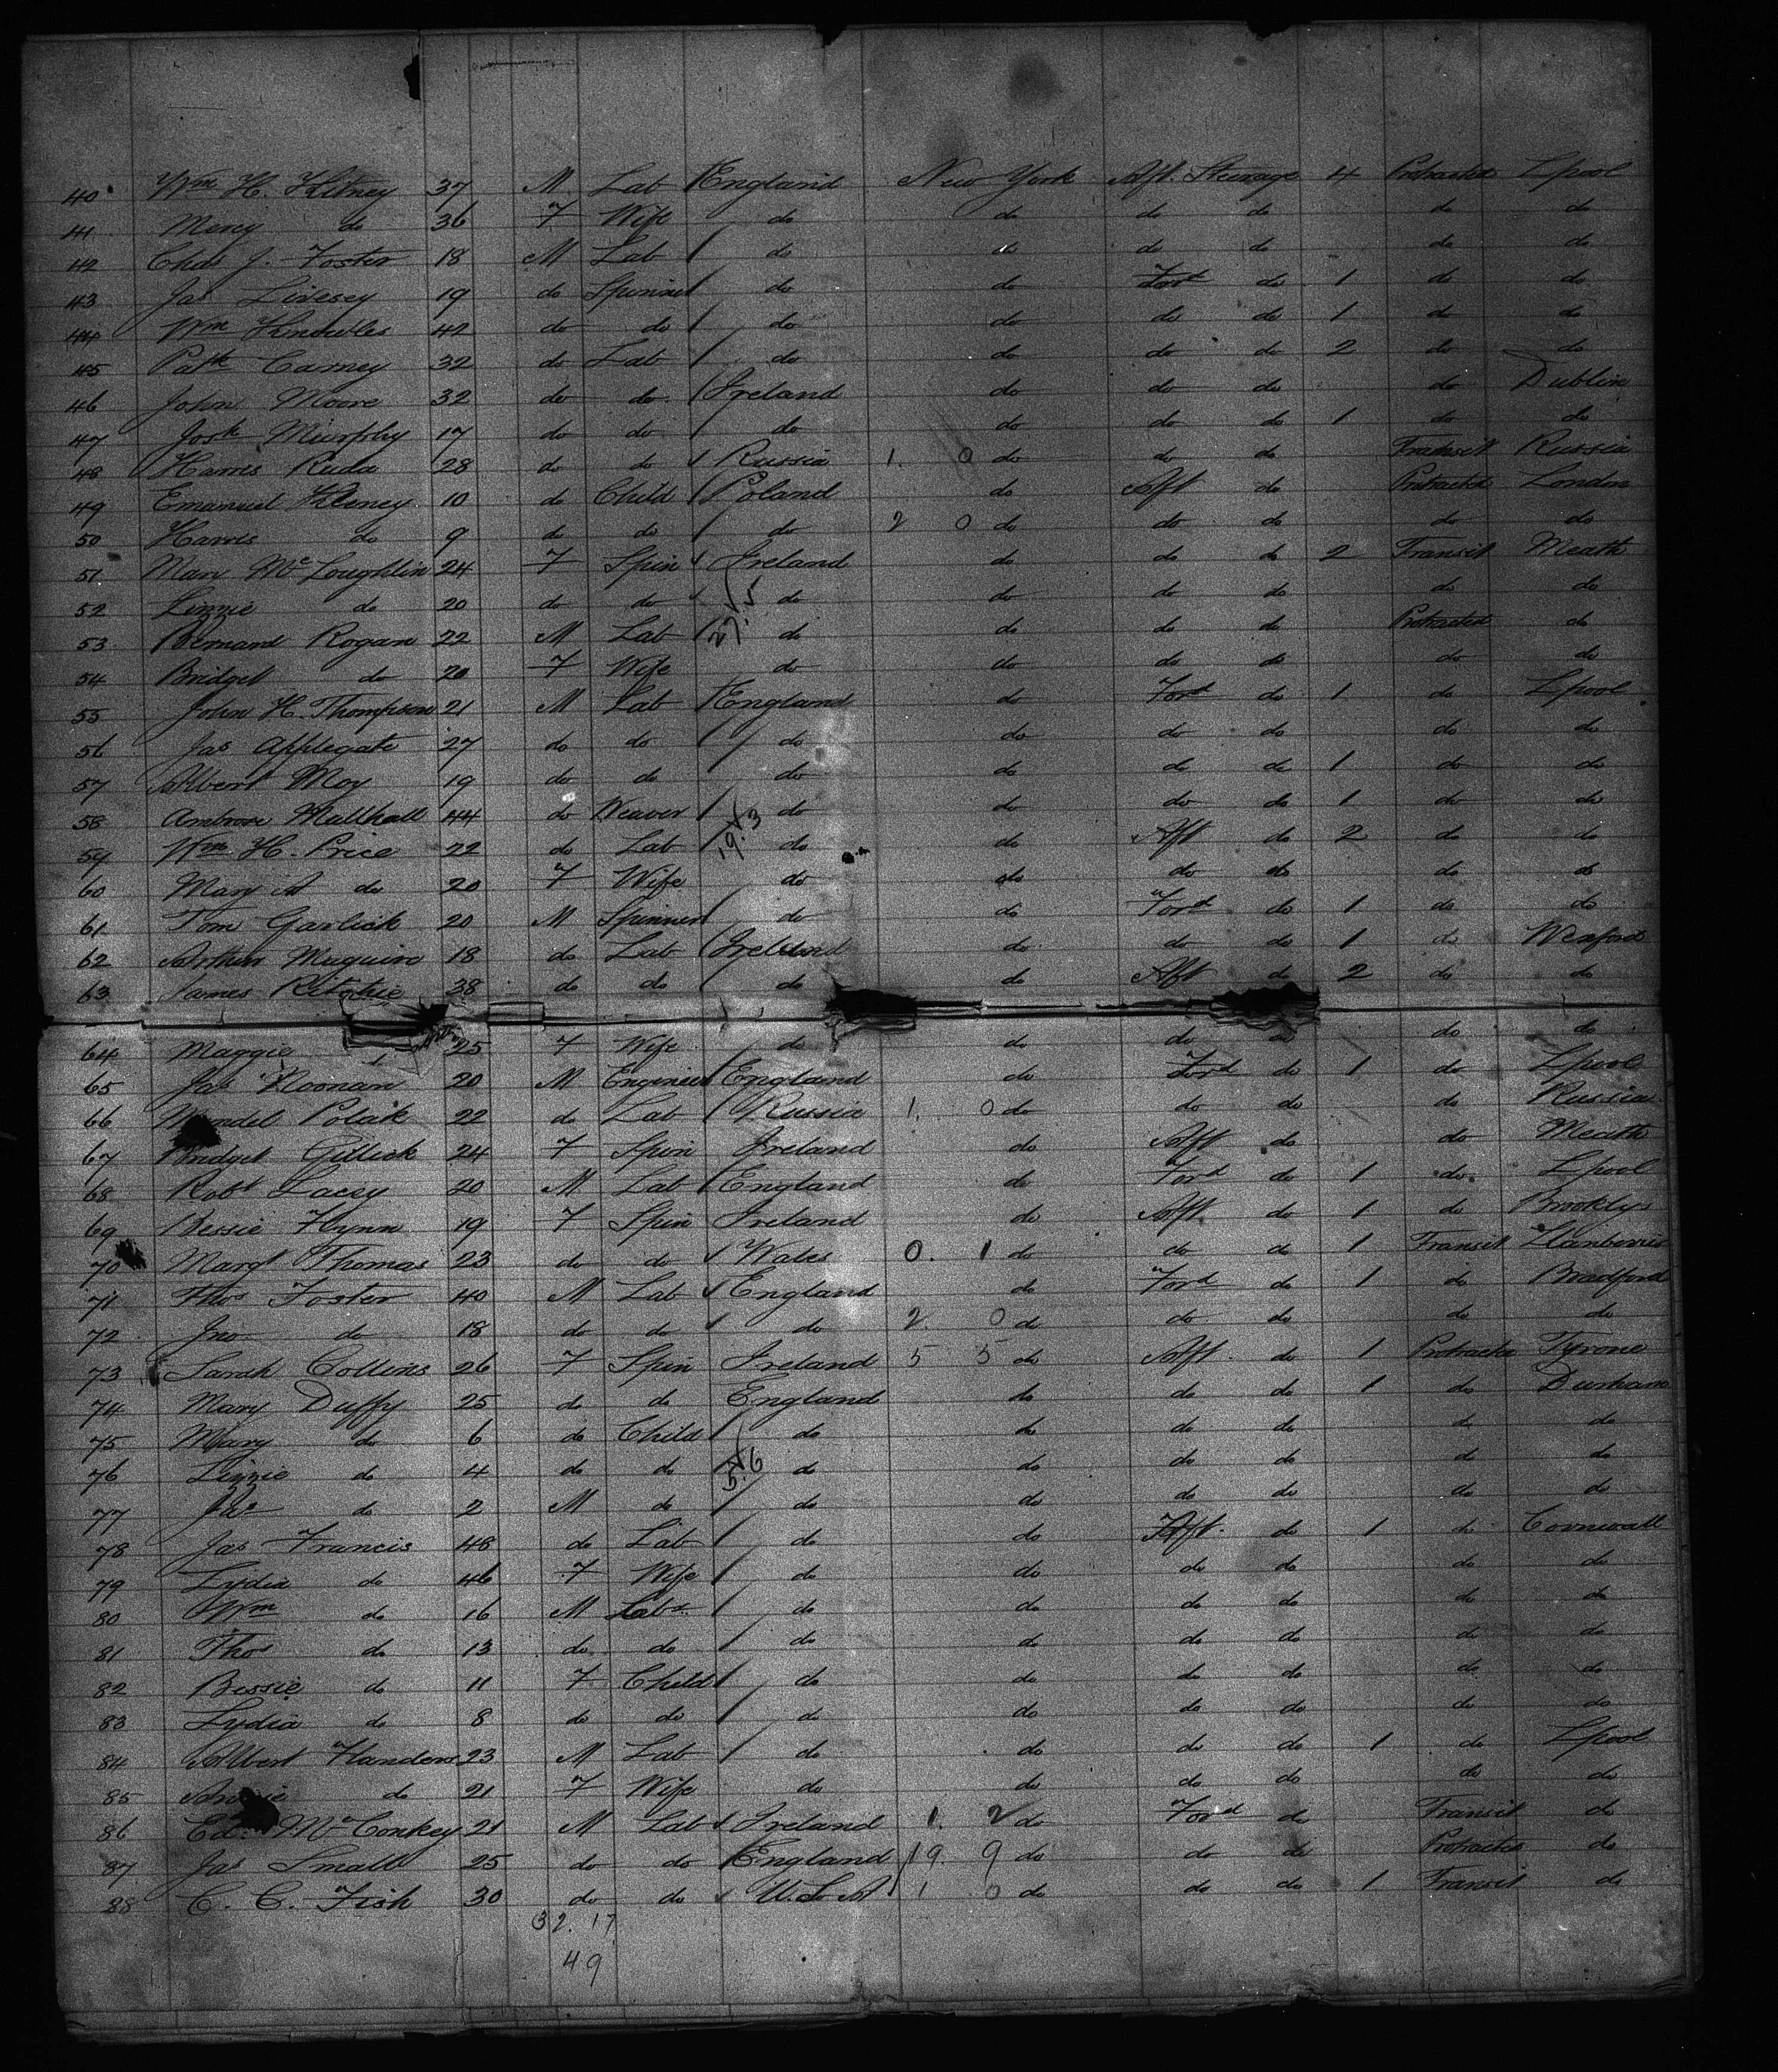 40 Wm H. Kitney 37 M Lab England New York Aft. Steerage 4 Protracted Lpool
41 Mercy do 36 F Wife do do do do do do
42 Chas J. Foster 18 M Lab do do do do do do
43 Jas Livesey 19 do Spinner do do Ford do 1 do do
44 Wm Knowles 42 do do do do do do 1 do do
45 Patk Carney 32 do Lab do do do do 2 do do
46 John Moore 32 do do Ireland do do do do Dublin
47 Josh Murphy 17 do do do do do do 1 do do
48 Harris Ruda 28 do do Russia 1. 0 do do do Transit Russia
49 Emanuel 10 do Child Poland do Aft do Protracted London
50 Harris do 9 do do do 2 0 do do do do do
51 Mary McLoughlin 24 F Spin Ireland do do do 2 Transit Meath
52 Lizzie do 20 do do do do do do do do
53 Bernard Rogan 22 M Lab 27.5 do do do do Protracted do
54 Bridget do 20 F Wife do do do do do do
55 John H. Thompson 21 M Lab England do Ford do 1 do Lpool
56 Jas Applegate 27 do do do do do do do do
57 Albert Moy 19 do do do do do do 1 do do
58 Ambrose Mullhall 44 do Weaver do do do do 1 do do
59 Wm. H. Price 22 do Lab 19.3 do do Aft do 2 do do
60 Mary A do 20 F Wife do do do do do do
61 Tom Garlick 20 M Spinner do do Ford do 1 do do
62 Arthur Maguire 18 do Lab Ireland do do do 1 do Wexford
63 James Ritchie 38 do do do do Aft do 2 do do
64 Maggie 25 F Wife do do do do do do
65 Jas Noonan 20 M Engineer England do Ford do 1 do Lpool
66 Mendel Polak 22 do Lab Russia 1. 0 do do do do Russia
67 Bridget Gillick 24 F Spin Ireland do Aft do do Meath
68 Robt Lacey 20 M Lab England do Ford do 1 do Lpool
69 Bessie Flynn 19 F Spin Ireland do Aft do 1 do Brooklyn
70 Margt Thomas 23 do do Wales 0. 1 do do do 1 Transit Llanberris
71 Thos Foster 40 M Lab England do Ford do 1 do Bradford
72 Jno do 18 do do do 2. 0 do do do do do
73 Sarah Collins 26 F Spin Ireland 5 5 do Aft do 1 Protracted Tyrone
74 Mary Duffy 25 do do England do do do 1 do Durham
75 Mary do 6 do Child do do do do do do
76 Lizzie do 4 do do 5.6 do do do do do do
77 Jas do 2 M do do do do do do do
78 Jas Francis 48 do Lab do do Aft. do 1 do Cornwall
79 Lydia do 46 F Wife do do do do do do
80 Wm do 16 M Labr do do do do do do
81 Thos do 13 do do do do do do do do
82 Bessie do 11 F Child do do do do do do
83 Lydia do 8 do do do do do do do do
84 Albert Flanders 23 M Lab do do do do 1 do Lpool
85 Annie do 21 F Wife do do do do do do
86 Ed. McConkey 21 M Lab Ireland 1. 2 do Ford do Transit do
87 Jas Small 25 do do England 19. 9 do do do Protracted do
88 C. C. Fish 30 do do U.S.A 1 0 do do do 1 Transit do
32. 17
49